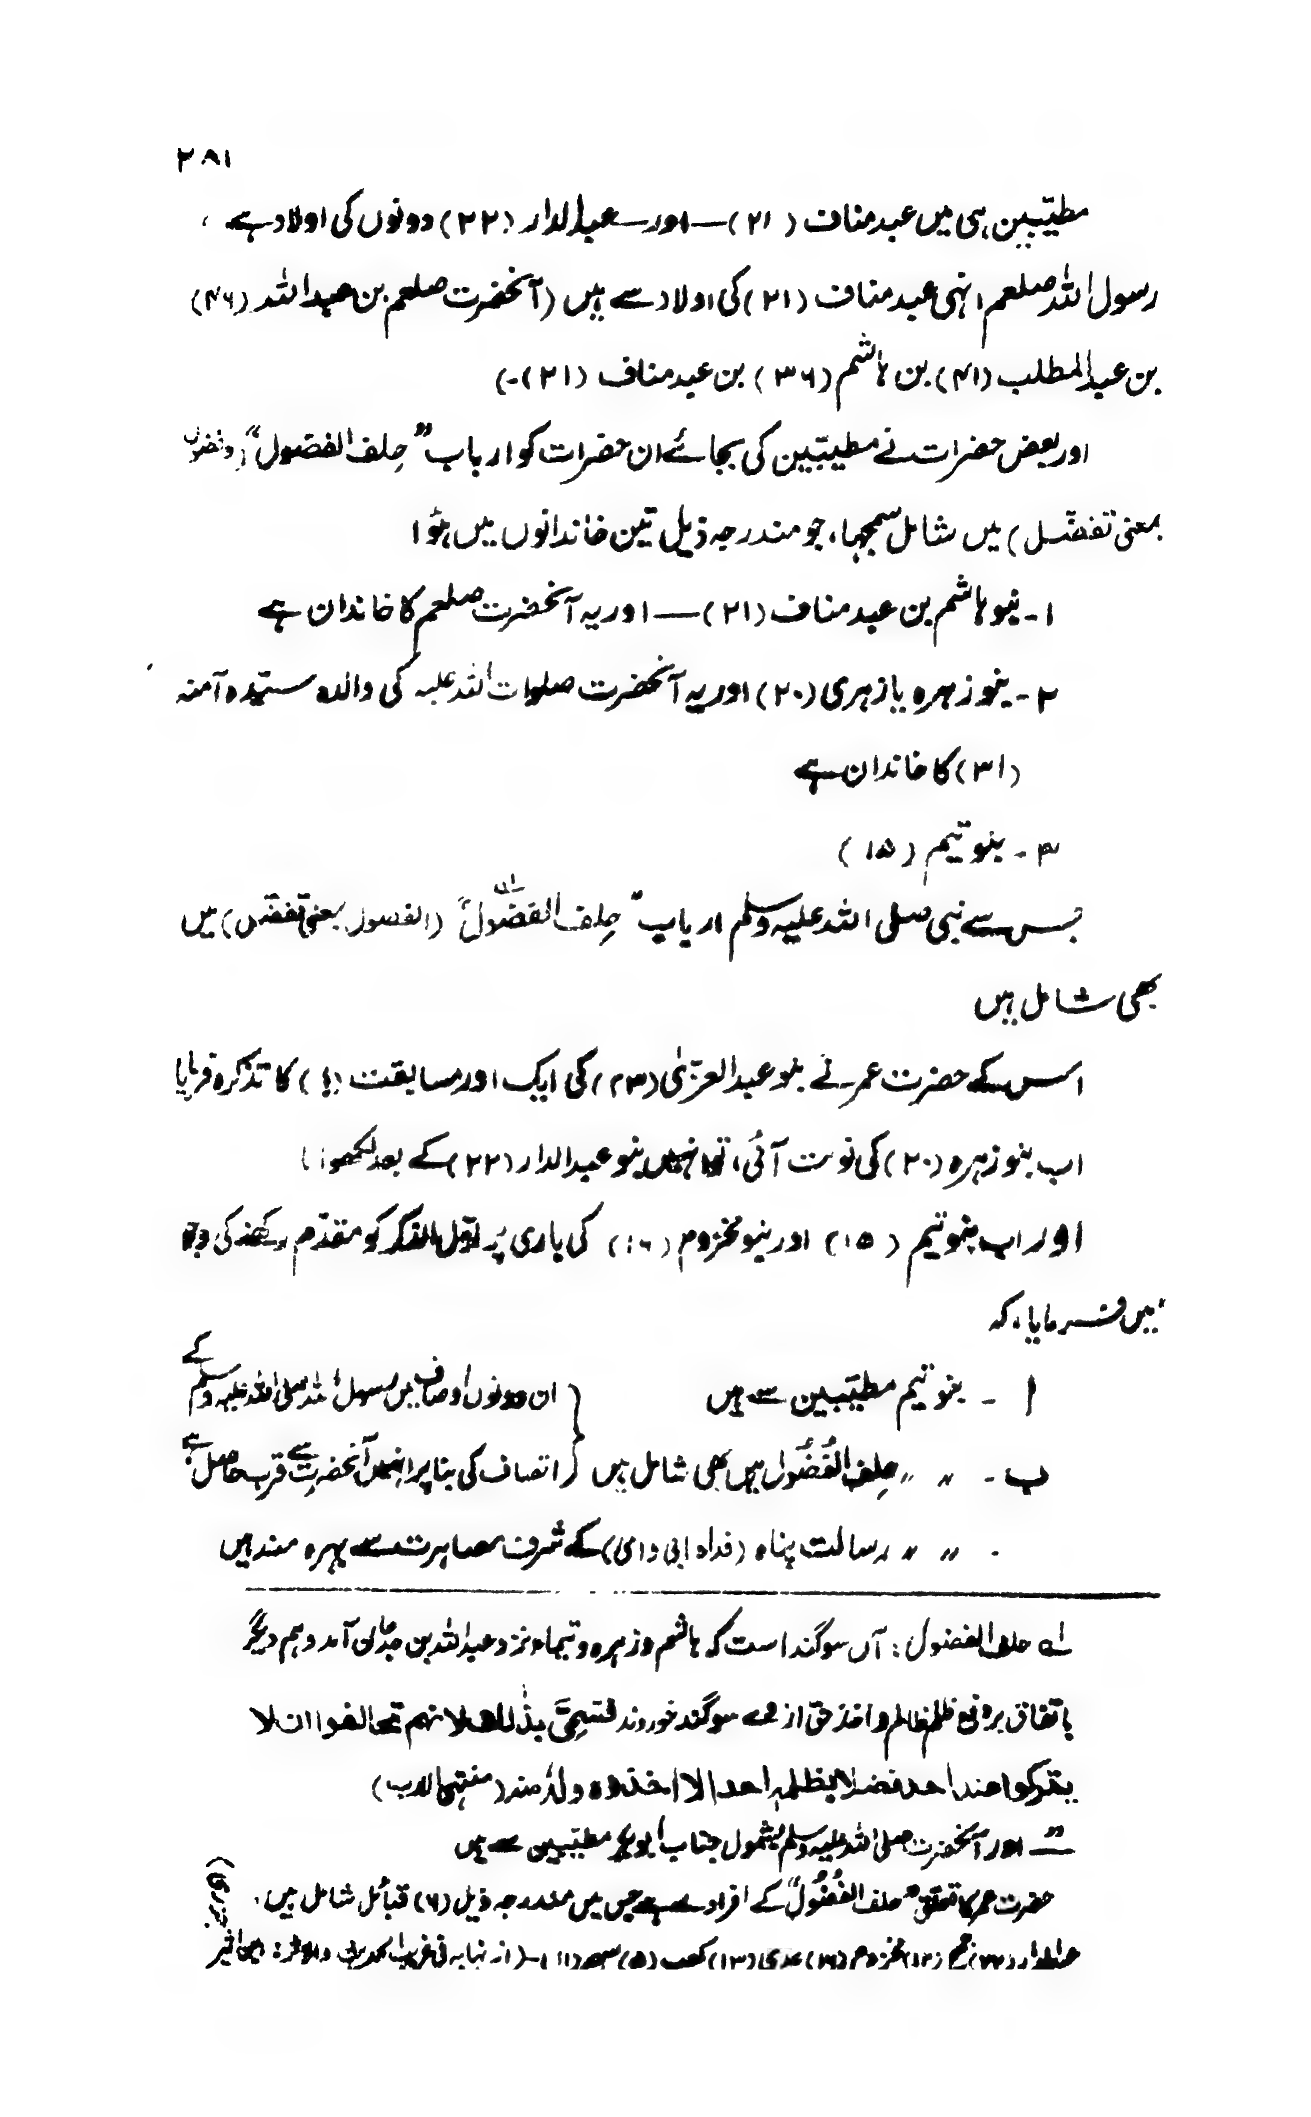 ۲۸۱
مطیّبین ہی میں عبد مناف (۲۱) — اور — عبدالدار (۲۲) دونوں کی اولاد ہے،
رسول اللہ صلعم انہی عبد مناف (۲۱) کی اولاد سے ہیں (آنحضرت صلعم بن عبداللہ (۴۶)
بن عبدالمطلب (۴۱) بن ہاشم (۳۶) بن عبد مناف (۲۱)-)
اور بعض حضرات نے مطیبّین کی بجائے ان حضرات کو ارباب "حِلف الفضول" (وفضول
بمعنی تفضّل) میں شامل سمجھا، جو مندرجہ ذیل تین خاندانوں میں ہوٴا
۱- بنو ہاشم بن عبد مناف (۲۱) — اور یہ آنحضرت صلعم کا خاندان ہے
۲- بنو زہرہ یا زہری (۲۰) اور یہ آنحضرت صلوات اللہ علیہ کی والدہ سیّدہ آمنہ
(۳۱) کا خاندان ہے
۳- بنو تیم (۱۵)
جس سے نبی صلی اللہ علیہ وسلم ارباب "حِلف الفضُول"لہ (الفضول بمعنی تفضّل) میں
بھی شامل ہیں
اس کے حضرت عمر نے بنو عبدالعزّیٰ (۲۳) کی ایک اور مسابقت (!) کا تذکرہ فرمایا
اب بنو زہرہ (۲۰) کی نوبت آئی، تو انہیں بنو عبدالدار (۲۲) کے بعد لکھوا
اور اب بنو تیم (۱۵) اور بنو مخزوم (۱۶) کی باری پر اوّل الذکر کو مقدّم رکھنے کی وجہ
میں فرمایا، کہ
ا - بنو تیم مطیّبین سے ہیں } ان دونوں اوصاف میں رسول اللہ صلی اللہ علیہ وسلم کے
ب - " " حِلف الفُضُول میں بھی شامل ہیں } اتصاف کی بنا پر انہیں آنحضرت سے قرب حاصل ہے
- " " رسالت پناہ (فداہ ابی وامی) کے شرف مصاہرت سے بہرہ مند ہیں
لہ حلف الفضول: آں سوگند است کہ ہاشم و زہرہ و تیما نزد عبداللہ بن جدعان آمد و ہم دیگر
باتفاق بر دفع ظلم ظالم و اخذ حق از وے سوگند خوردند فسمیّ بذٰلک لانہم تحالفوا ان لا
یترکوا عند احد فضلا یظلمہ احدا الا اخذوہ ولہ منہ (منتہی الارب)
"— اور آنحضرت صلی اللہ علیہ وسلم بشمول جناب ابوبکر مطیّبین سے ہیں
حضرت عمر کا تعلق "حلف الفُضُول" کے افراد سے ہے جس میں مندرجہ ذیل (۶) قبائل شامل ہیں،
عبدالدار (۲۲) جمح (۱۲) مخزوم (۱۶) عدی (۱۳) کعب (۵) سہم (۱۱) - (از نہایہ فی غریب الحدیث والاثر: ابن اثیر
جزری)